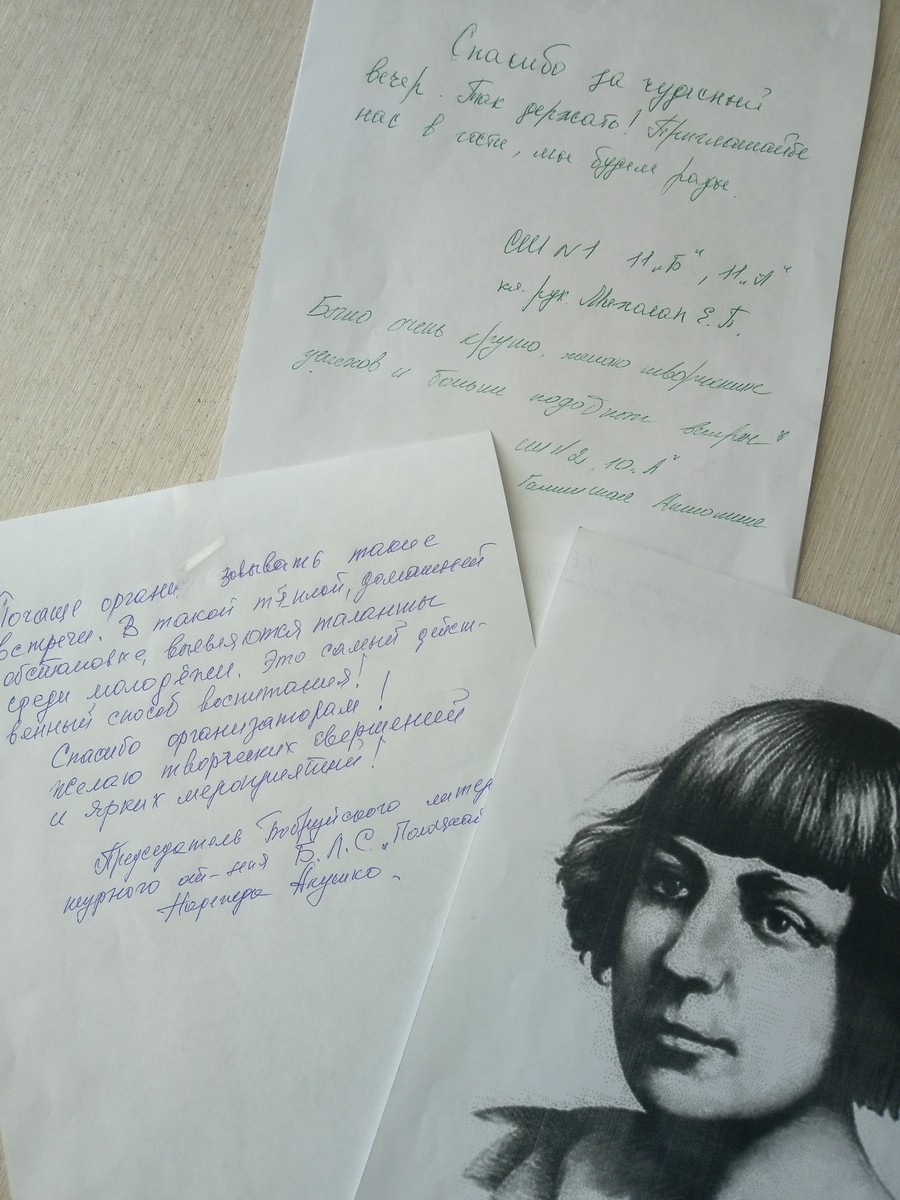 Спасибо за чудесный
вечер. Так держать! Приглашайте
нас в гости, мы будем рады.
СШ N1 11„Б“, 11„А“
кл. рук. Е.П.
Было очень круто, желаю творческих
успехов и больше подобных встреч
СШ N2, 10„А“
Почаще органи зовывать такие
встречи. В такой тёплой, домашней
обстановке, выевляются таланты
среди молодёжи. Это самый дейст-
венный способ воспитания!
Спасибо организаторам!
Желаю творческих свершений
и ярких мероприятий!
Председатель Бобруйского литер
турного об-ния Б.Л.С.
Надежда Якушко.